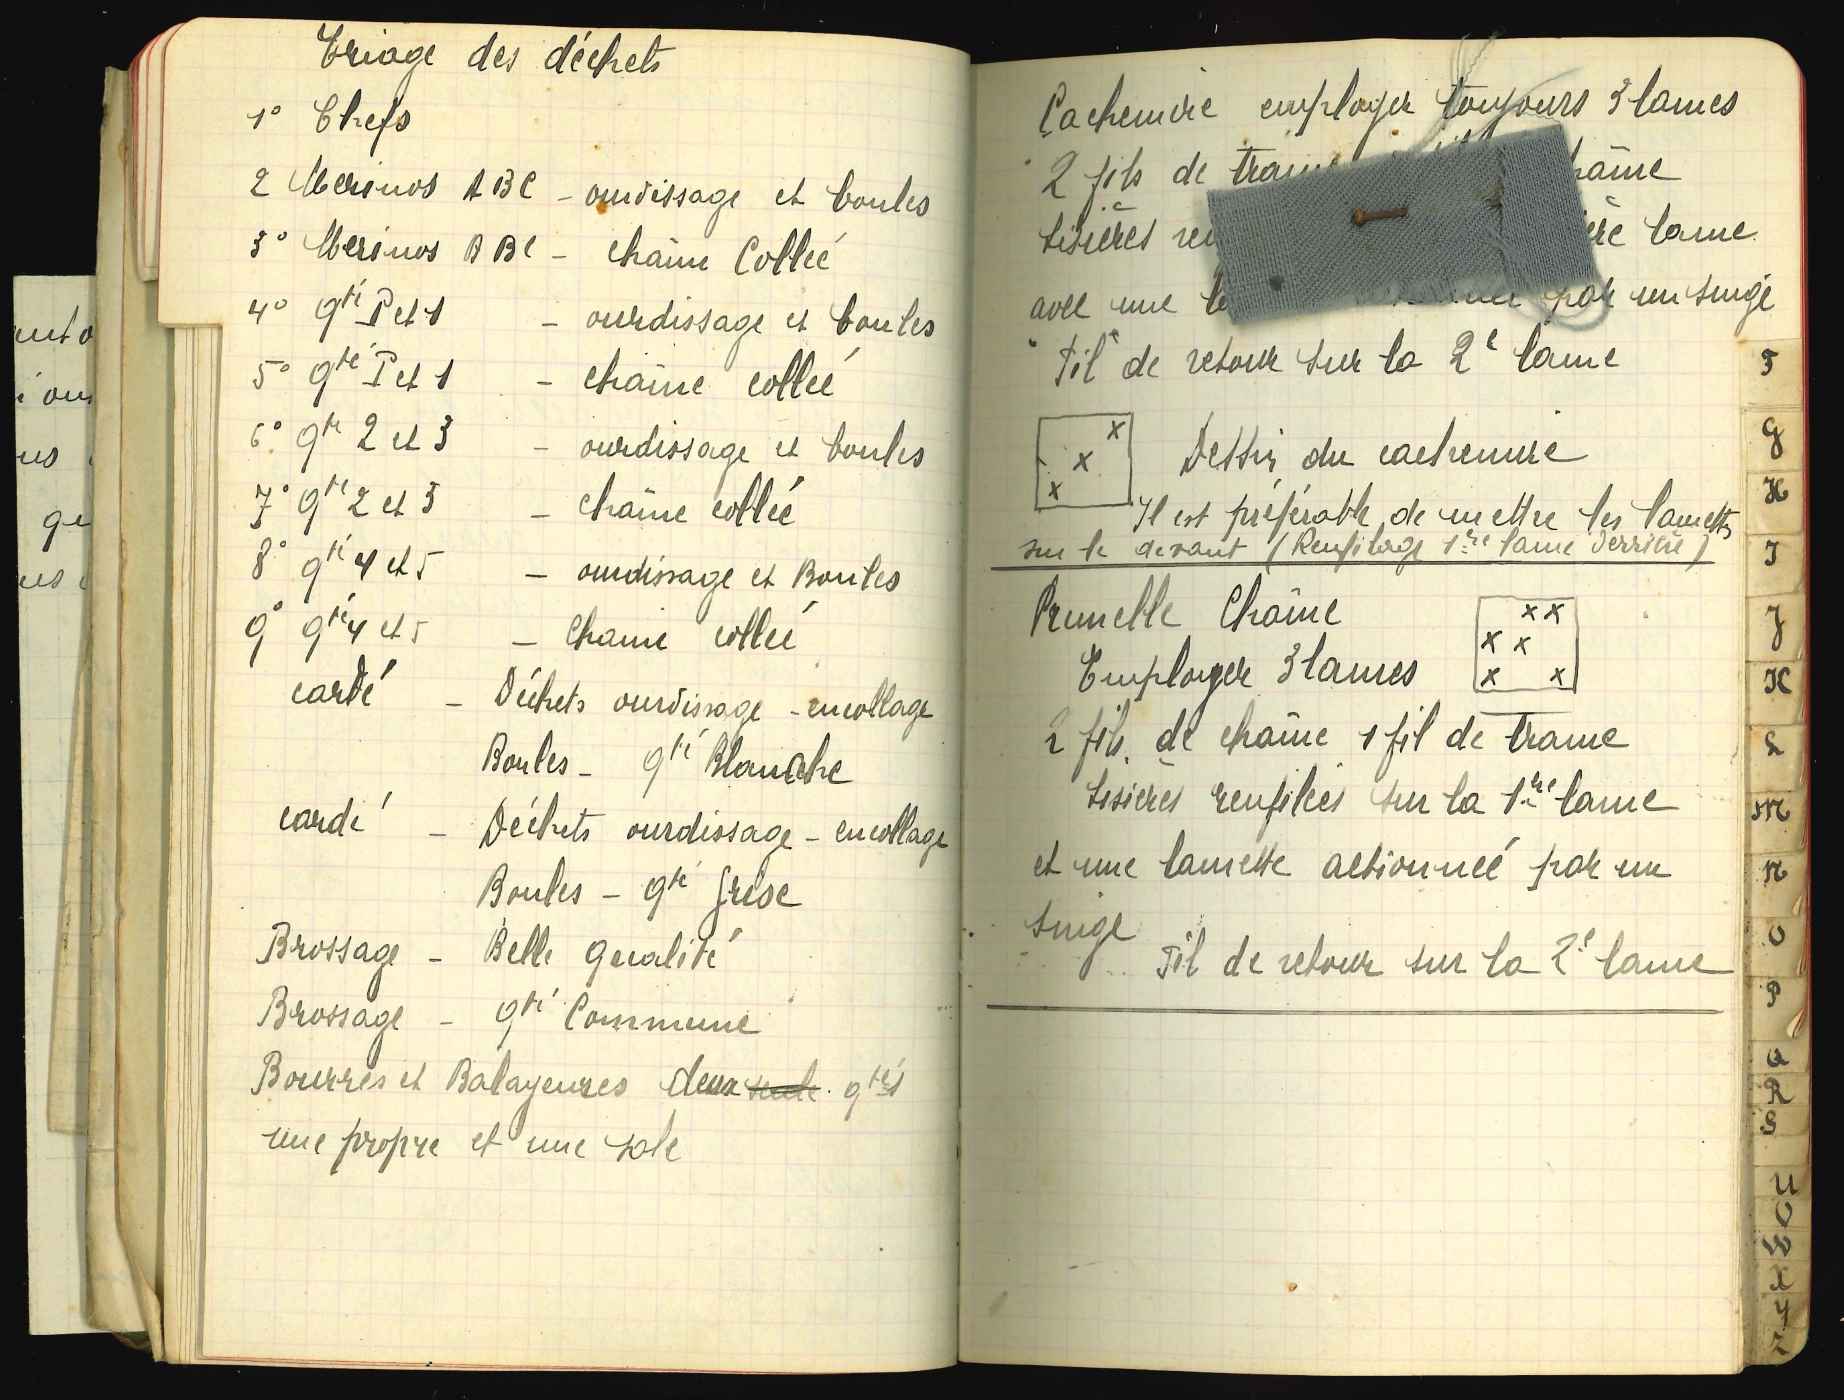 Triage des déchets
1° Chefs
2 Merinos ABC - ourdissage et boules
3° Merinos ABC - chaîne Collée
4° Qté P et 1 - ourdissage et boules
5° Qté P et 1 - chaîne collée
6° Qté 2 et 3 - ourdissage et boules
7° Qté 2 et 3 - chaîne collée
8° Qté 4 et 5 - ourdissage et Boules
9° Qté 4 et 5 - Chaine collée
cardé - Déchets ourdissage - encollage
Boules - Qté Blanche
cardé - Déchets ourdissage - encollage
Boules - Qté grise
Brossage - Belle qualité
Brossage - Qté Commune
Bourres et Balayeures deux seule Qtés
une propre et une sale
Cachemire employer toujours 3 lames
2 fils de trame chaîne
Lisières lame
avec une par un singe
Fil de retour sur la 2e lame
x
x
x
Dessin du cachemire
Il est préférable de mettre les lamettes
sur le devant (Renfilage 1ère lame derrière)
Prunelle Chaîne
x x
x x
x x
Employer 3 lames
2 fils de chaîne 1 fil de trame
Lisières renfilées sur la 1ère lame
et une lamette actionnée par un
singe
Fil de retour sur la 2e lame
F
G
H
I
J
K
L
M
N
O
P
Q
R
S
U
V
W
X
Y
Z